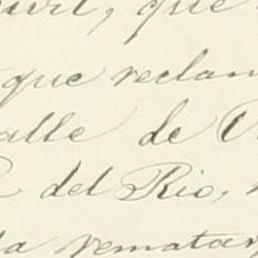 que
que reclam
alle de
del Rio,
la rematar